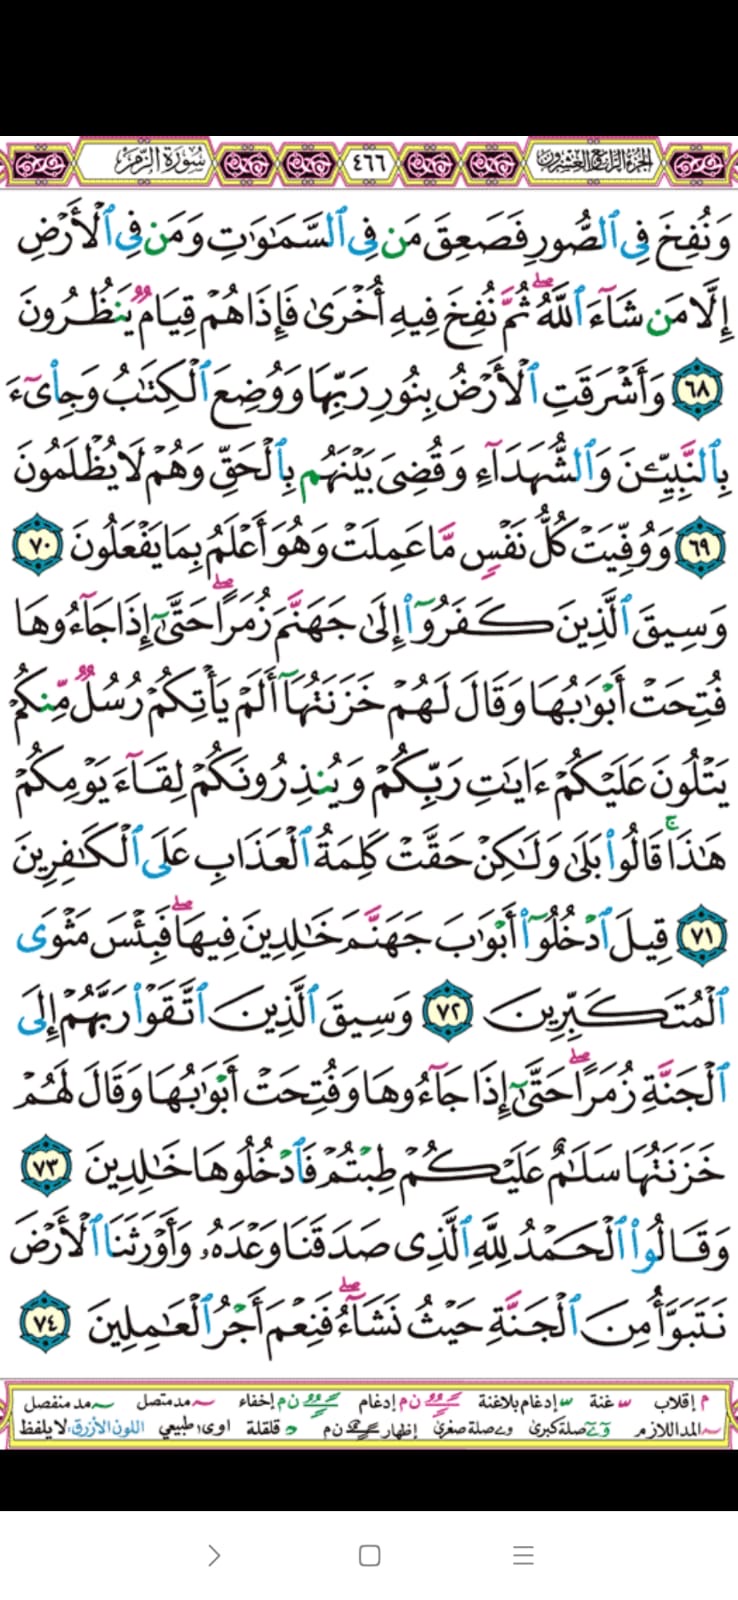 الجزء الرابع والعشرون ٤٦٦ سورة الزمر
وَنُفِخَ فِى ٱلصُّورِ فَصَعِقَ مَن فِى ٱلسَّمَٰوَٰتِ وَمَن فِى ٱلْأَرْضِ
إِلَّا مَن شَآءَ ٱللَّهُ ۖ ثُمَّ نُفِخَ فِيهِ أُخْرَىٰ فَإِذَا هُمْ قِيَامٌ يَنظُرُونَ
٦٨ وَأَشْرَقَتِ ٱلْأَرْضُ بِنُورِ رَبِّهَا وَوُضِعَ ٱلْكِتَٰبُ وَجِا۟ىٓءَ
بِٱلنَّبِيِّـۧنَ وَٱلشُّهَدَآءِ وَقُضِىَ بَيْنَهُم بِٱلْحَقِّ وَهُمْ لَا يُظْلَمُونَ
٦٩ وَوُفِّيَتْ كُلُّ نَفْسٍ مَّا عَمِلَتْ وَهُوَ أَعْلَمُ بِمَا يَفْعَلُونَ ٧٠
وَسِيقَ ٱلَّذِينَ كَفَرُوٓا۟ إِلَىٰ جَهَنَّمَ زُمَرًا ۖ حَتَّىٰٓ إِذَا جَآءُوهَا
فُتِحَتْ أَبْوَٰبُهَا وَقَالَ لَهُمْ خَزَنَتُهَآ أَلَمْ يَأْتِكُمْ رُسُلٌ مِّنكُمْ
يَتْلُونَ عَلَيْكُمْ ءَايَٰتِ رَبِّكُمْ وَيُنذِرُونَكُمْ لِقَآءَ يَوْمِكُمْ
هَٰذَا ۚ قَالُوا۟ بَلَىٰ وَلَٰكِنْ حَقَّتْ كَلِمَةُ ٱلْعَذَابِ عَلَى ٱلْكَٰفِرِينَ
٧١ قِيلَ ٱدْخُلُوٓا۟ أَبْوَٰبَ جَهَنَّمَ خَٰلِدِينَ فِيهَا ۖ فَبِئْسَ مَثْوَى
ٱلْمُتَكَبِّرِينَ ٧٢ وَسِيقَ ٱلَّذِينَ ٱتَّقَوْا۟ رَبَّهُمْ إِلَى
ٱلْجَنَّةِ زُمَرًا ۖ حَتَّىٰٓ إِذَا جَآءُوهَا وَفُتِحَتْ أَبْوَٰبُهَا وَقَالَ لَهُمْ
خَزَنَتُهَا سَلَٰمٌ عَلَيْكُمْ طِبْتُمْ فَٱدْخُلُوهَا خَٰلِدِينَ ٧٣
وَقَالُوا۟ ٱلْحَمْدُ لِلَّهِ ٱلَّذِى صَدَقَنَا وَعْدَهُۥ وَأَوْرَثَنَا ٱلْأَرْضَ
نَتَبَوَّأُ مِنَ ٱلْجَنَّةِ حَيْثُ نَشَآءُ ۖ فَنِعْمَ أَجْرُ ٱلْعَٰمِلِينَ ٧٤
م إقلاب غنة إدغام بلاغنة ن م إدغام ن م إخفاء مد متصل مد منفصل
المد اللازم صلة كبرى وے صلة صغرى إظهار ن م قلقلة اوى طبيعي اللون الأزرق: لا يلفظ